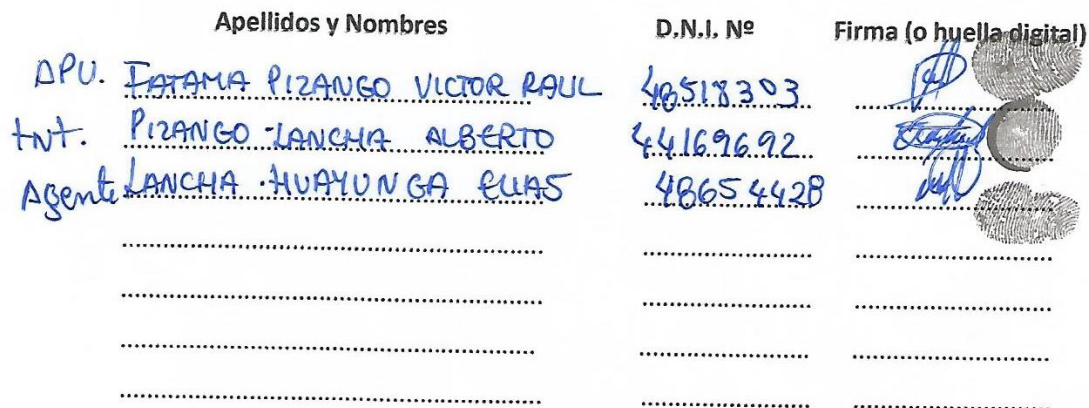 Apellidos y Nombres D.N.I. Nº Firma (o huella digital)
APU. FATAMA PIZANGO VICTOR RAUL 48518303
tnt. PIZANGO LANCHA ALBERTO 44169692
Agente LANCHA HUAYUNGA ELIAS 48654428